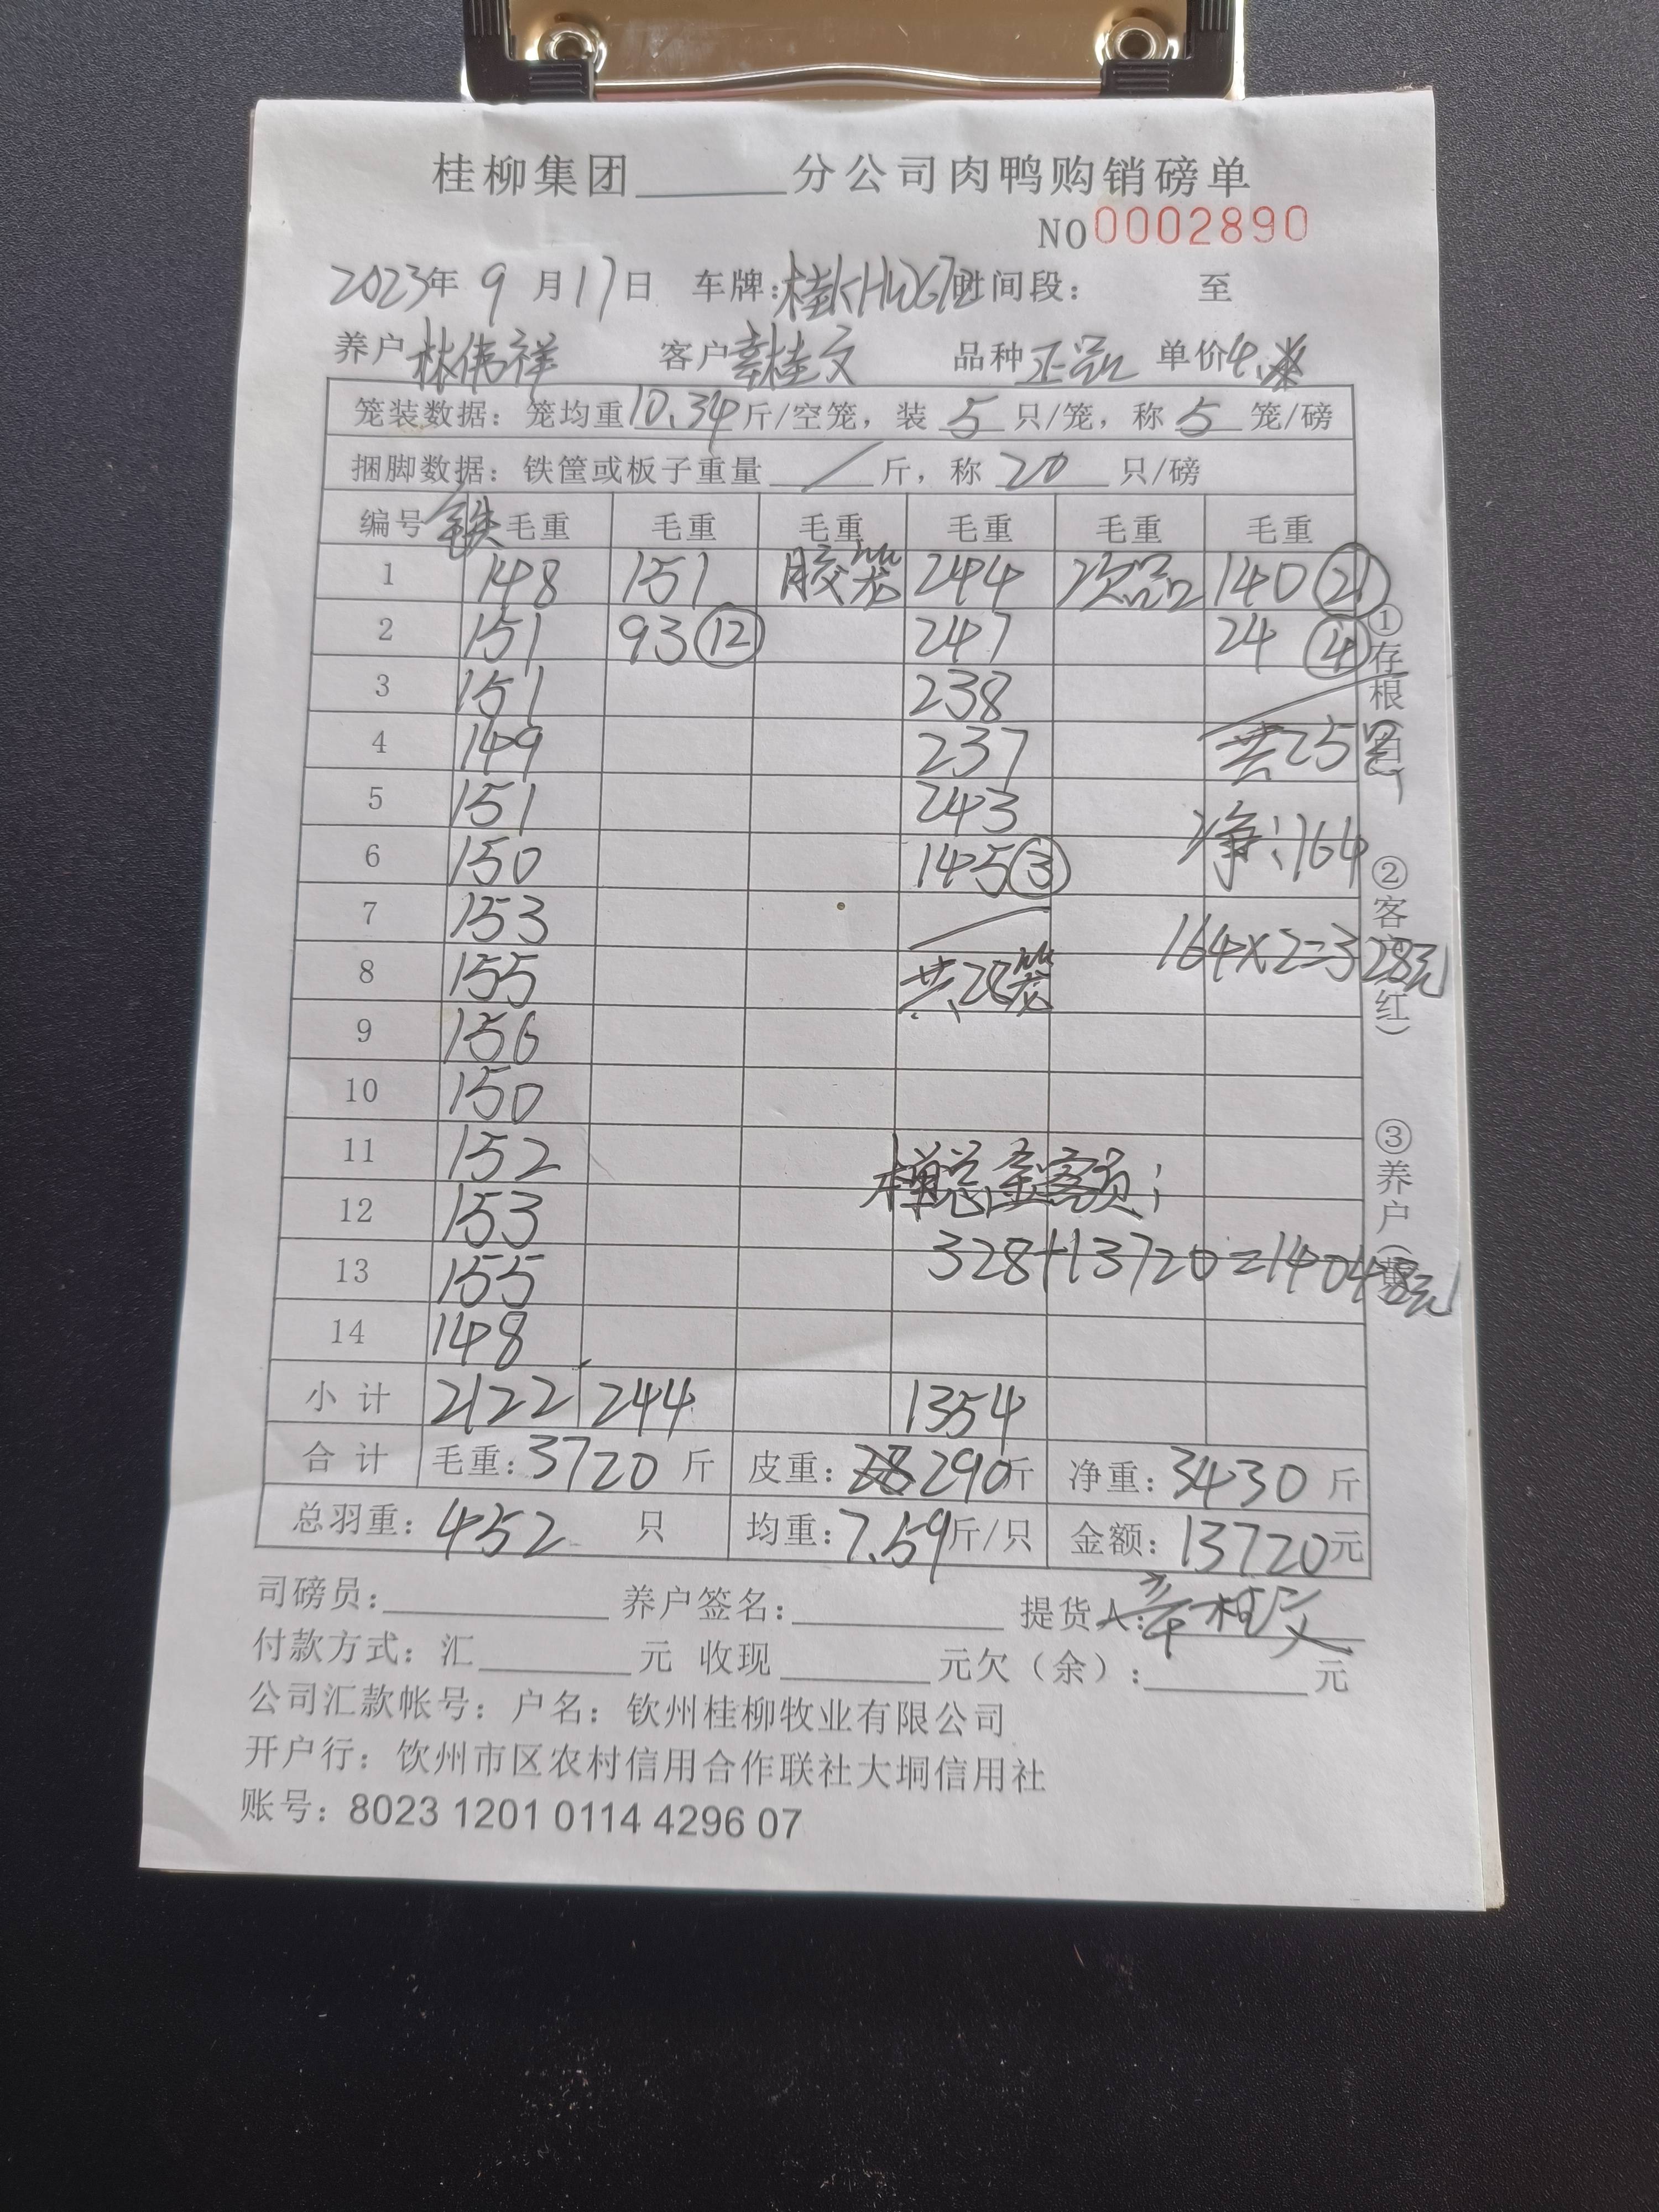 桂柳集团______分公司肉鸭购销磅单
NO 0002890
2023年 9 月 17 日 车牌: 时间段: 至
养户 林伟祥 客户 辛桂文 品种 正品 单价 4.
笼装数据: 笼均重 10.34 斤/空笼, 装 5 只/笼, 称 5 笼/磅
捆脚数据: 铁筐或板子重量 / 斤, 称 20 只/磅
编号 铁 毛重 毛重 毛重 毛重 毛重 毛重
1 148 151 胶笼 244 次品 140 (21)
2 151 93 (12) 247 24 (4)
3 151 238
4 149 237 共25只
5 151 243
6 150 145 (3) 净:164
7 153
8 155 共28笼 164×2=328元
9 156
10 150
11 152 总金额:
12 153
13 155 328+13720=14048元
14 148
小计 2122 244 1354
合计 毛重: 3720 斤 皮重: 290 斤 净重: 3430 斤
总羽重: 452 只 均重: 7.59 斤/只 金额: 13720 元
司磅员:______ 养户签名:______ 提货人: 辛桂文
付款方式: 汇______元 收现______元欠(余):______元
公司汇款帐号: 户名: 钦州桂柳牧业有限公司
开户行: 饮州市区农村信用合作联社大垌信用社
账号: 8023 1201 0114 4296 07
①存根(白)
②客户(红)
③养户(黄)